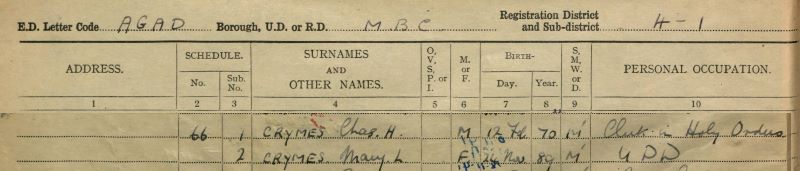 E.D. Letter Code AGAD Borough, U.D. or R.D. M.B.C Registration District and Sub-district 4-1
ADDRESS. SCHEDULE. No. Sub. No. SURNAMES AND OTHER NAMES. O, V, S, P. or I. M. or F. BIRTH- Day. Year. S, M, W, or D. PERSONAL OCCUPATION.
1 2 3 4 5 6 7 8 9 10
66 1 CRYMES Chas. H. M 12 Fb 70 M Clerk in Holy Orders
2 CRYMES Mary L F 26 Nov 89 M UDD